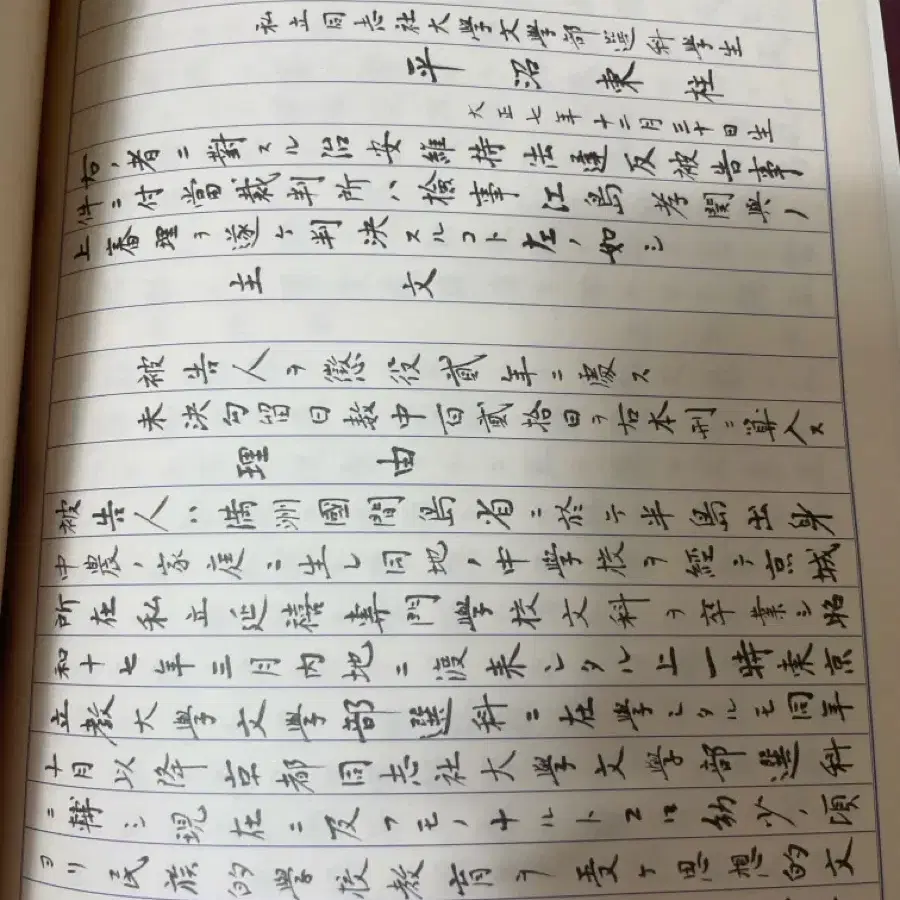 私立同志社大學文學部選科學生
平沼東柱
大正七年十二月三十日生
右ノ者ニ對スル治安維持法違反被告事
件ニ付當裁判所ハ檢事江島孝關與ノ
上審理ヲ遂ケ判決スルコト左ノ如シ
主文
被告人ヲ懲役貳年ニ處ス
未決勾留日數中百貳拾日ヲ右本刑ニ算入ス
理由
被告人ハ滿洲國間島省ニ於テ半島出身
中農ノ家庭ニ生レ同地ノ中學校ヲ經テ京城
所在私立延禧專門學校文科ヲ卒業シ昭
和十七年三月內地ニ渡來シタル上一時東京
立教大學文學部選科ニ在學シタルモ同年
十月以降京都同志社大學文學部選科
ニ轉シ現在ニ及フモノナルトコロ幼少ノ頃
ヨリ民族的學校教育ヲ受ケ思想的文